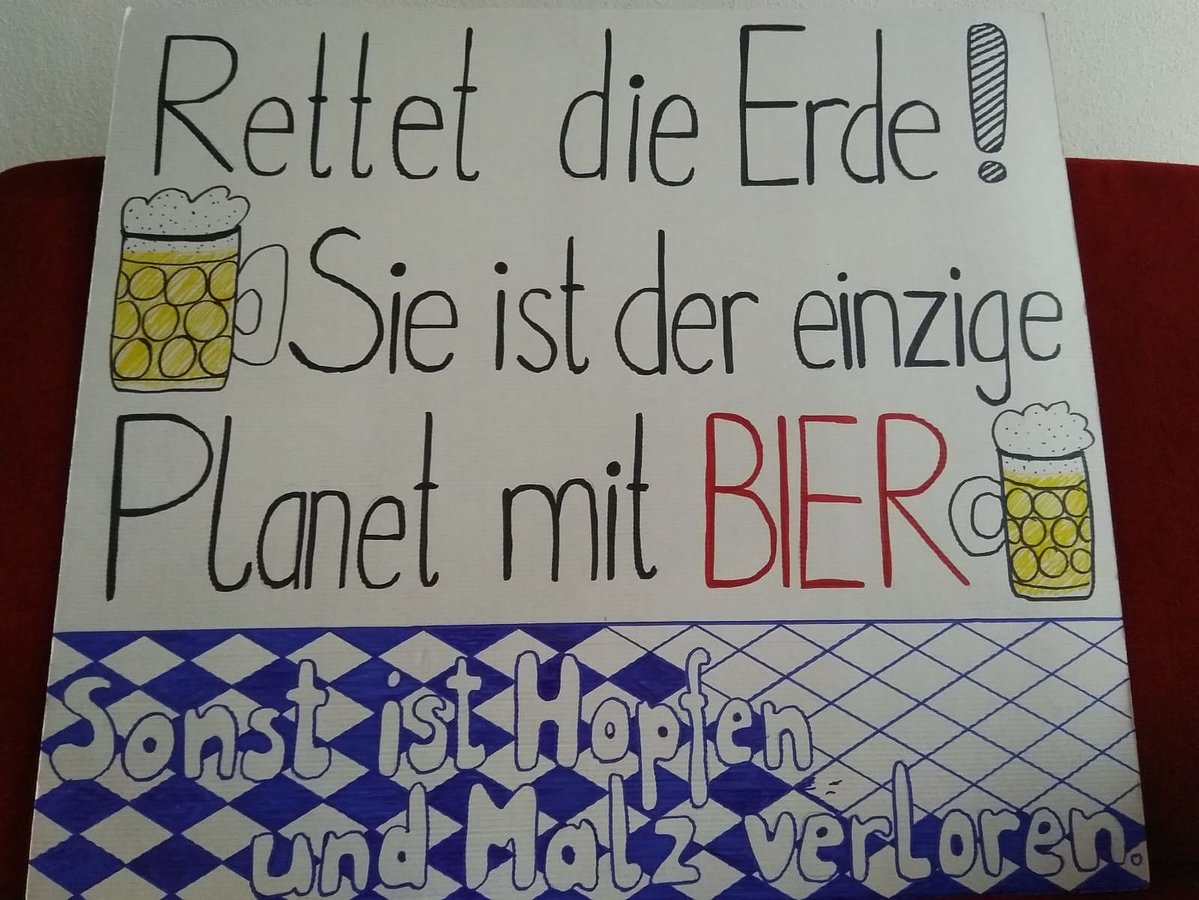 Rettet die Erde!
Sie ist der einzige
Planet mit BIER
Sonst ist Hopfen
und Malz verloren.